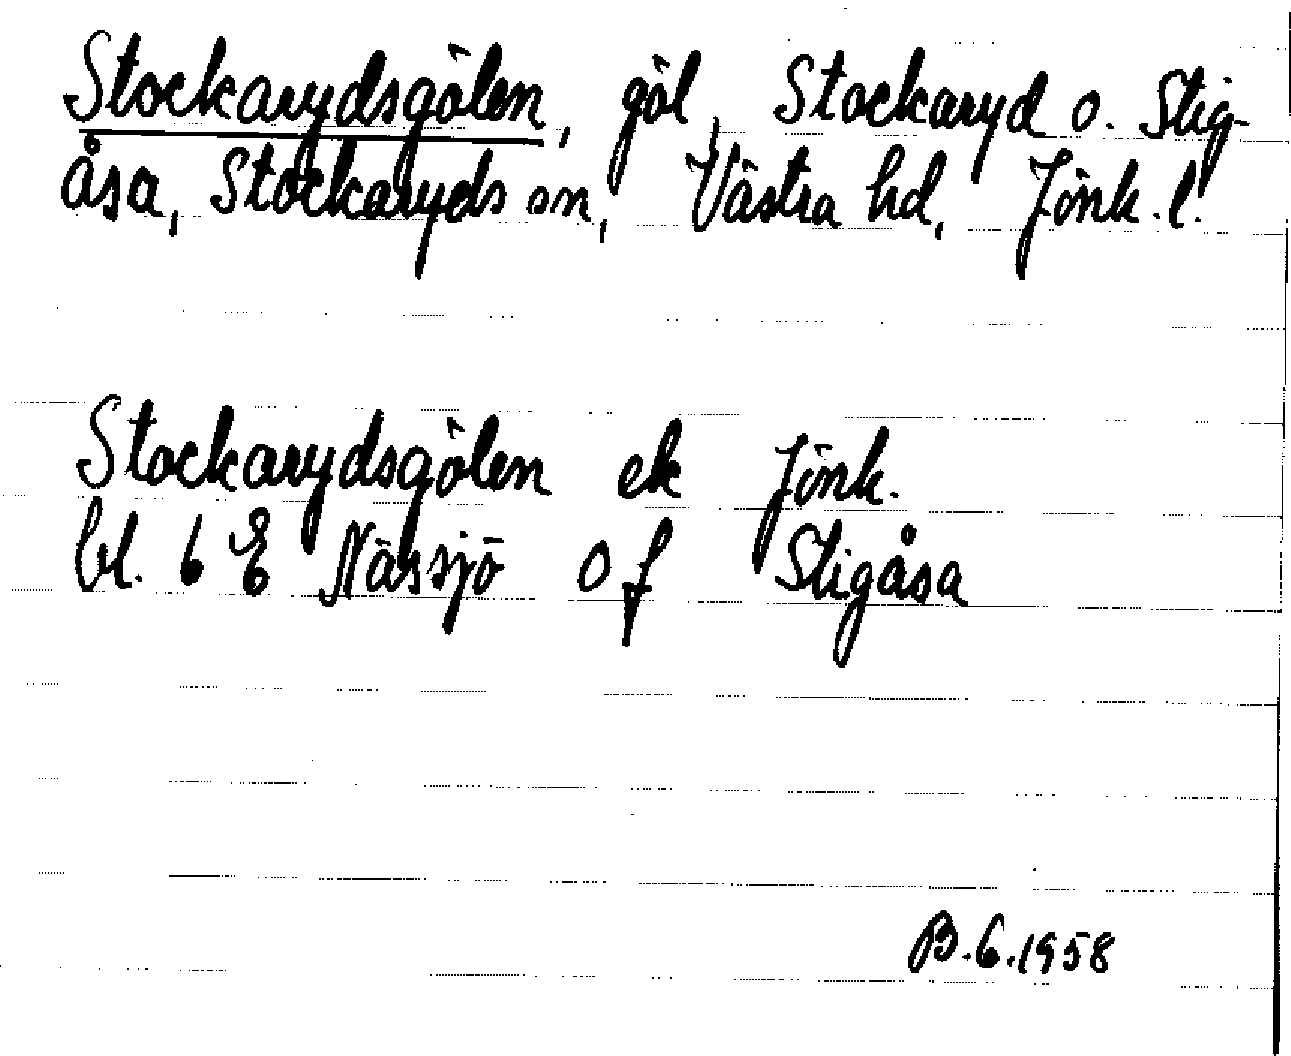 Stockarydsgölen, göl, Stockaryd o. Stig-
åsa, Stockaryds sn, Västra hd, Jönk. l.
Stockarydsgölen ek Jönk.
bl. 6 E Nässjö 0 f Stigåsa
B.G.1958